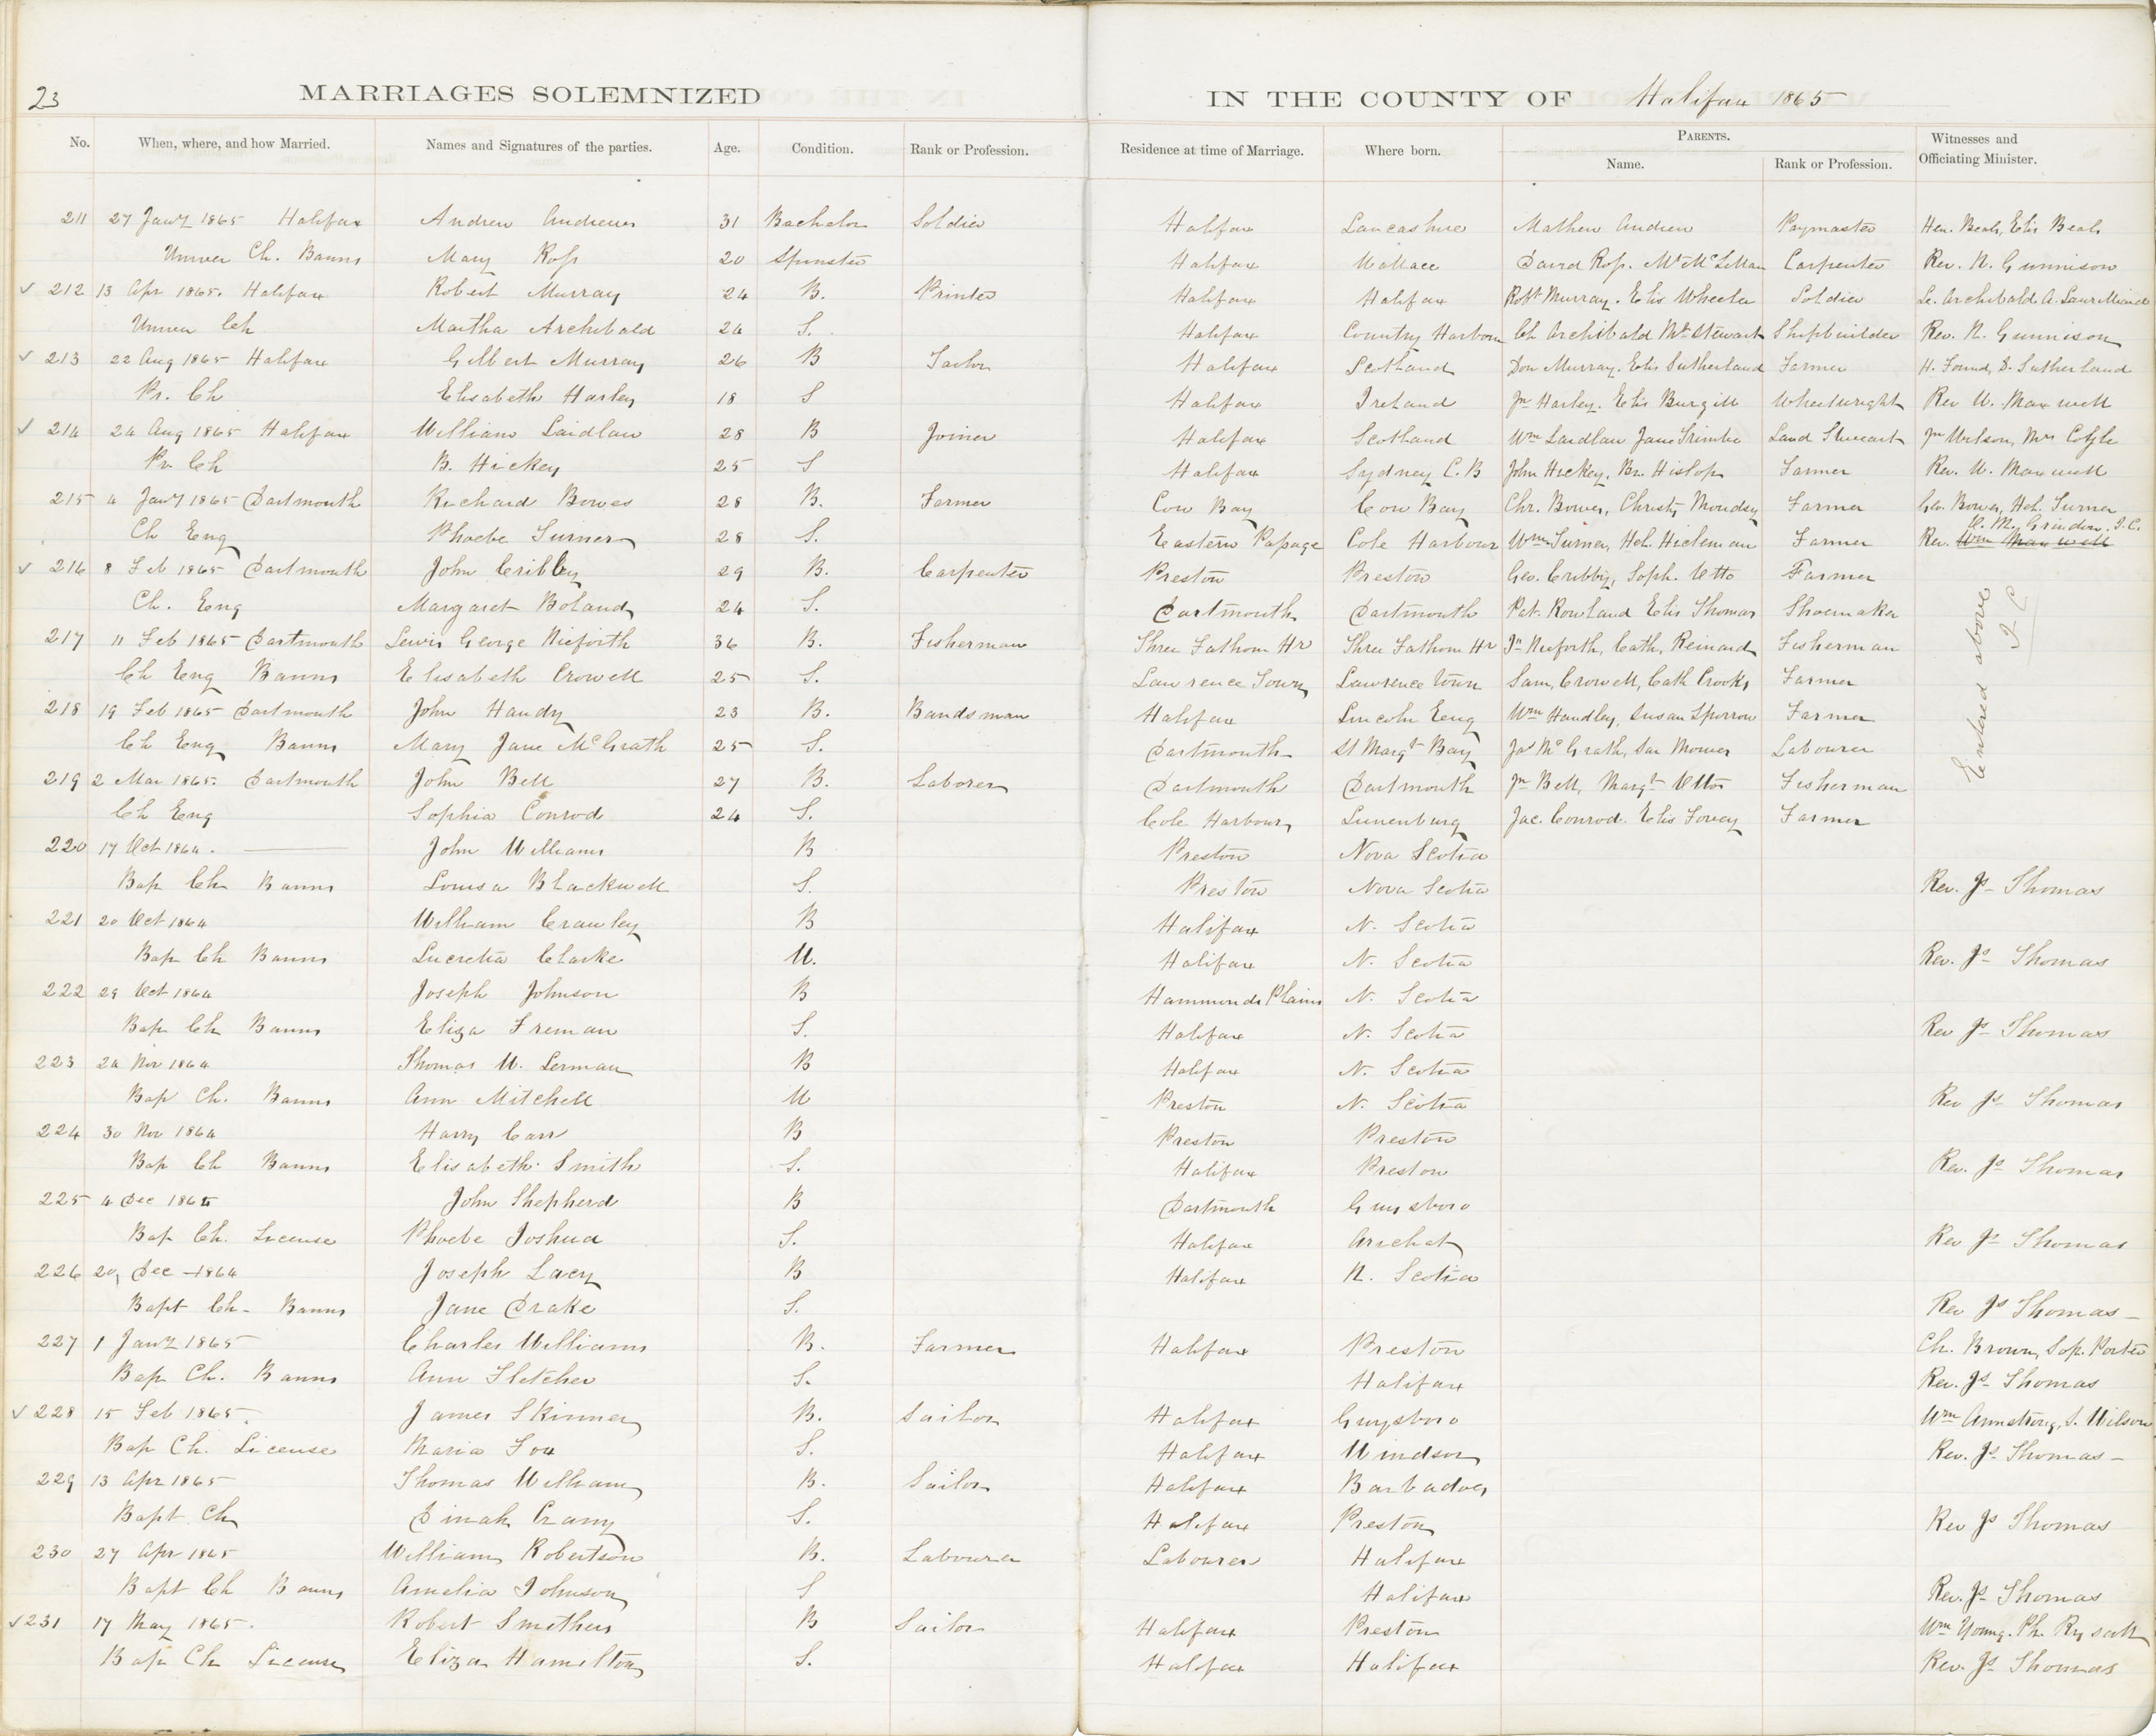 23
MARRIAGES SOLEMNIZED IN THE COUNTY OF Halifax 1865
No. When, where, and how Married. Names and Signatures of the parties. Age. Condition. Rank or Profession. Residence at time of Marriage. Where born. PARENTS. Name. Rank or Profession. Witnesses and Officiating Minister.
211 27 Jany 1865 Halifax Andrew Andrews 31 Bachelor Soldier Halifax Lancashire Mathew Andrew Paymaster Hen. Beals, Elis Beals
Univer Ch. Banns Mary Ross 20 Spinster Halifax Wallace David Ross. Mt McLellan Carpenter Rev. N. Gunnison
✓ 212 13 Apr 1865. Halifax Robert Murray 24 B. Printer Halifax Halifax Robt Murray. Elis Wheeler Soldier Le. Archibald A.
Univer Ch Martha Archibald 24 S. Halifax Country Harbour Ch Archibald Mt Stewart Shipbuilder Rev. N. Gunnison
✓ 213 22 Aug 1865 Halifax Gilbert Murray 26 B Tailor Halifax Scotland Don Murray. Elis Sutherland Farmer H. Found, D. Sutherland
Pr. Ch Elisabeth Harley 18 S Halifax Ireland Jn Harley. Elis Wheelwright Rev W. Maxwell
✓ 214 24 Aug 1865 Halifax William Laidlaw 28 B Joiner Halifax Scotland Wm Laidlaw Jane Land Stewart Jn Wilson, Mrs
Pr. Ch B. Hickey 25 S Halifax Sydney C. B John Hickey. Br. Hislop Farmer Rev. W. Maxwell
215 4 Jany 1865 Dartmouth Richard Bowes 28 B. Farmer Cow Bay Cow Bay Chr. Bowes, Christy Farmer Geo. Bowes, Hel. Turner
Ch Eng Phoebe Turner 28 S. Eastern Passage Cole Harbour Wm Turner, Hel. Hickman Farmer Rev. Wm Maxwell C. M. Grindon. I. C.
✓ 216 8 Feb 1865 Dartmouth John Cribby 29 B. Carpenter Preston Preston Geo. Cribby, Soph. Otto Farmer
Ch. Eng Margaret Boland 24 S. Dartmouth Dartmouth Pat. Rowland Elis Thomas Shoemaker
217 11 Feb 1865 Dartmouth Lewis George Nieforth 36 B. Fisherman Three Fathom Hr Three Fathom Hr Jn Nieforth, Cath, Reinard Fisherman
Ch Eng Banns Elisabeth Crowell 25 S. Lawrence Town Lawrence town Sam, Crowell, Cath Crooks Farmer
218 19 Feb 1865 Dartmouth John Handy 23 B. Bandsman Halifax Lincoln Eng Wm Handley, Susan Sporrow Farmer
Ch Eng Banns Mary Jane McGrath 25 S. Dartmouth St Margt Bay Jas McGrath, Sar Mower Labourer
219 2 Mar 1865. Dartmouth John Bell 27 B. Laborer Dartmouth Dartmouth Jn Bell, Margt Otto Fisherman
Ch Eng Sophia Conrod 24 S. Cole Harbour Lunenburg Jac. Conrod. Elis Farmer
Entered above I C
220 17 Oct 1864. John Williams B Preston Nova Scotia
Bap Ch Banns Louisa Blackwell S. Preston Nova Scotia Rev. Js Thomas
221 20 Oct 1864 William Crawley B Halifax N. Scotia
Bap Ch Banns Lucretia Clarke W. Halifax N. Scotia Rev. Js Thomas
222 29 Oct 1864 Joseph Johnson B Hammonds Plains N. Scotia
Bap Ch Banns Eliza Freman S. Halifax N. Scotia Rev Js Thomas
223 24 Nov 1864 Thomas W. Lerman B Halifax N. Scotia
Bap Ch. Banns Ann Mitchell W Preston N. Scotia Rev Js Thomas
224 30 Nov 1864 Harry Carr B Preston Preston
Bap Ch Banns Elisabeth Smith S. Halifax Preston Rev. Js Thomas
225 4 Dec 1864 John Shepherd B Dartmouth Guysboro
Bap Ch. License Phoebe Joshua S. Halifax Arichat Rev Js Thomas
226 20, Dec 1864 Joseph Lacy B Halifax N. Scotia
Bapt Ch - Banns Jane Drake S. Rev Js Thomas
227 1 Jany 1865 Charles Williams B. Farmer Halifax Preston Ch. Brown, Sop. Porter
Bap Ch. Banns Ann Fletcher S. Halifax Rev. Js Thomas
✓ 228 15 Feb 1865. James Skinner B. Sailor Halifax Guysboro Wm Armstrong, S. Wilson
Bap Ch. License Maria Fox S. Halifax Windsor Rev. Js Thomas
229 13 Apr 1865 Thomas William B. Sailor Halifax Barbadoes
Bapt Ch Dinah Crany S. Halifax Preston Rev Js Thomas
230 27 Apr 1865 William Robertson B. Labourer Labourer Halifax
Bapt Ch Banns Amelia Johnson S Halifax Rev. Js Thomas
✓ 231 17 May 1865. Robert Smithers B Sailor Halifax Preston Wm Young. Ph.
Bap Ch License Eliza Hamilton S. Halifax Halifax Rev. Js Thomas